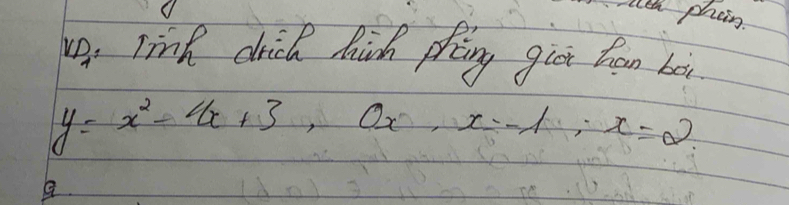 phân.
VD1: Tính dtích hình phẳng giới hạn bởi.
y = x² - 4x + 3 , Ox , x = -1 ; x = 2.